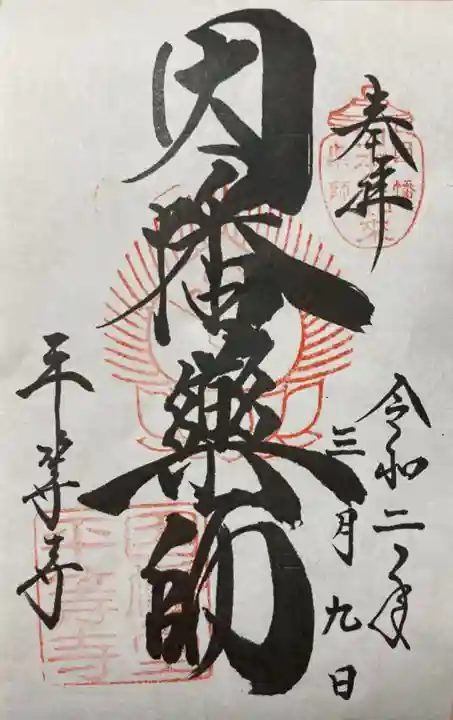 奉拝
令和二年
三月九日
因幡薬師
平等寺
因幡堂
平等寺